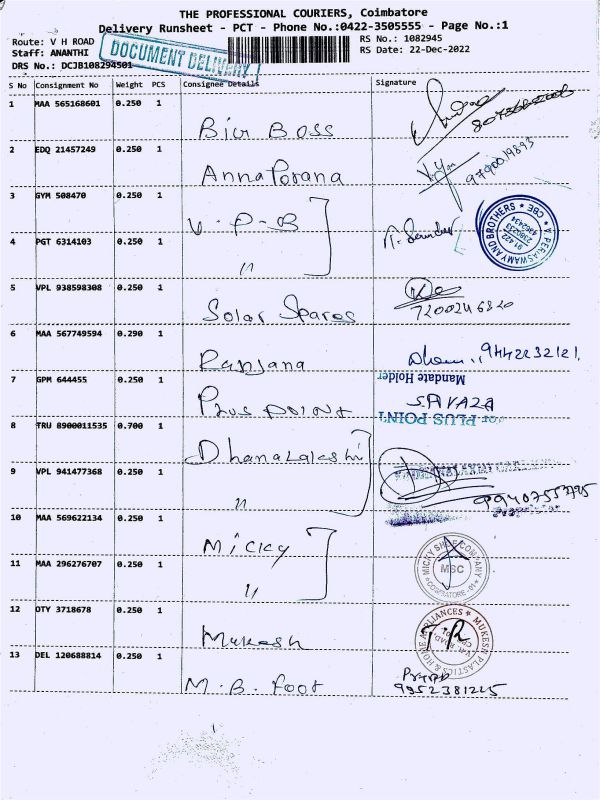 THE PROFESSIONAL COURIERS, Coimbatore
Delivery Runsheet - PCT - Phone No.:0422-3505555 - Page No.:1
Route: V H ROAD
RS No.: 1082945
Staff: ANANTHI
RS Date: 22-Dec-2022
DRS No.: DCJB108294501
DOCUMENT DELIVERY
S No Consignment No Weight PCS Consignee Details Signature
1 MAA 565168601 0.250 1
Bior Boss
2 EDQ 21457249 0.250 1
AnnaPorana 9790019893
3 GYM 508470 0.250 1
V.P.B
V PERIASWAMY AND BROTHERS * CBE *
4 PGT 6314103 0.250 1
"
5 VPL 938598308 0.250 1
Solar Spares 7200246820
6 MAA 567749594 0.290 1
Ranjana 9442232121
7 GPM 644455 0.250 1
Mandate Holder
Plus POINT
For PLUS POINT
8 TRU 8900011535 0.700 1
Dhanalakshi
9 VPL 941477368 0.250 1
"
10 MAA 569622134 0.250 1
Micky
MICKY SHOE COMPANY
MSC
COIMBATORE
11 MAA 296276707 0.250 1
"
12 OTY 3718678 0.250 1
Mukesh
MUKESH PLASTICS & HOME APPLIANCES
13 DEL 120688814 0.250 1
M.B. foot
9952381225